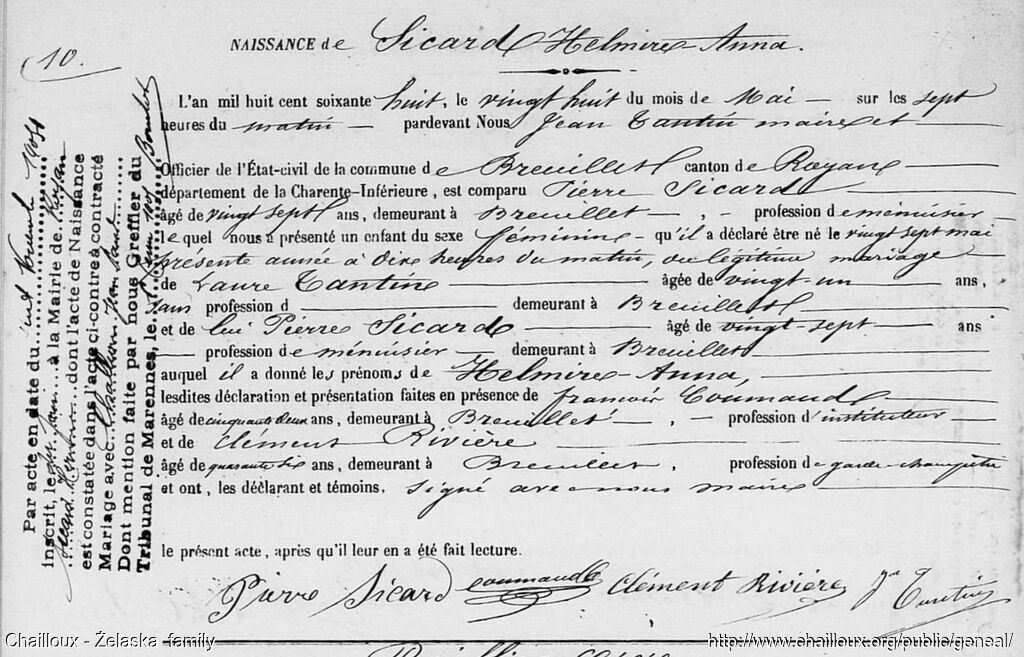 10.
NAISSANCE de Sicard Helmire Anna.
L'an mil huit cent soixante huit, le vingt huit du mois de Mai sur les sept
heures du matin pardevant Nous Jean Tantin maire et
Officier de l'État-civil de la commune de Breuillet canton de Royan
département de la Charente-Inférieure, est comparu Pierre Sicard
âgé de vingt sept ans, demeurant à Breuillet, profession de ménuisier
lequel nous a présenté un enfant du sexe féminin qu'il a déclaré être né le vingt sept mai
présente année à dix heures du matin, du légitime mariage
de Laure Tantin âgée de vingt-un ans,
sans profession d demeurant à Breuillet
et de lui Pierre Sicard âgé de vingt-sept ans
profession de ménuisier demeurant à Breuillet
auquel il a donné les prénoms de Helmire-Anna,
lesdites déclaration et présentation faites en présence de francois Coumande
âgé de cinquante deux ans, demeurant à Breuillet, profession d'instituteur
et de Clément Rivière
âgé de quarante six ans, demeurant à Breuillet, profession de garde-champêtre
et ont, les déclarant et témoins, signé avec nous maire
le présent acte, après qu'il leur en a été fait lecture.
Pierre Sicard Coumande Clément Rivière Jn Tantin
Par acte en date du
inscrit, le à la Mairie de Royan
dont l'acte de Naissance
est constatée dans l'acte ci-contre à contracté
Mariage avec Jean
Dont mention faite par nous Greffier du
Tribunal de Marennes, le
Chailloux - Želaska family
http://www.chailloux.org/public/geneal/